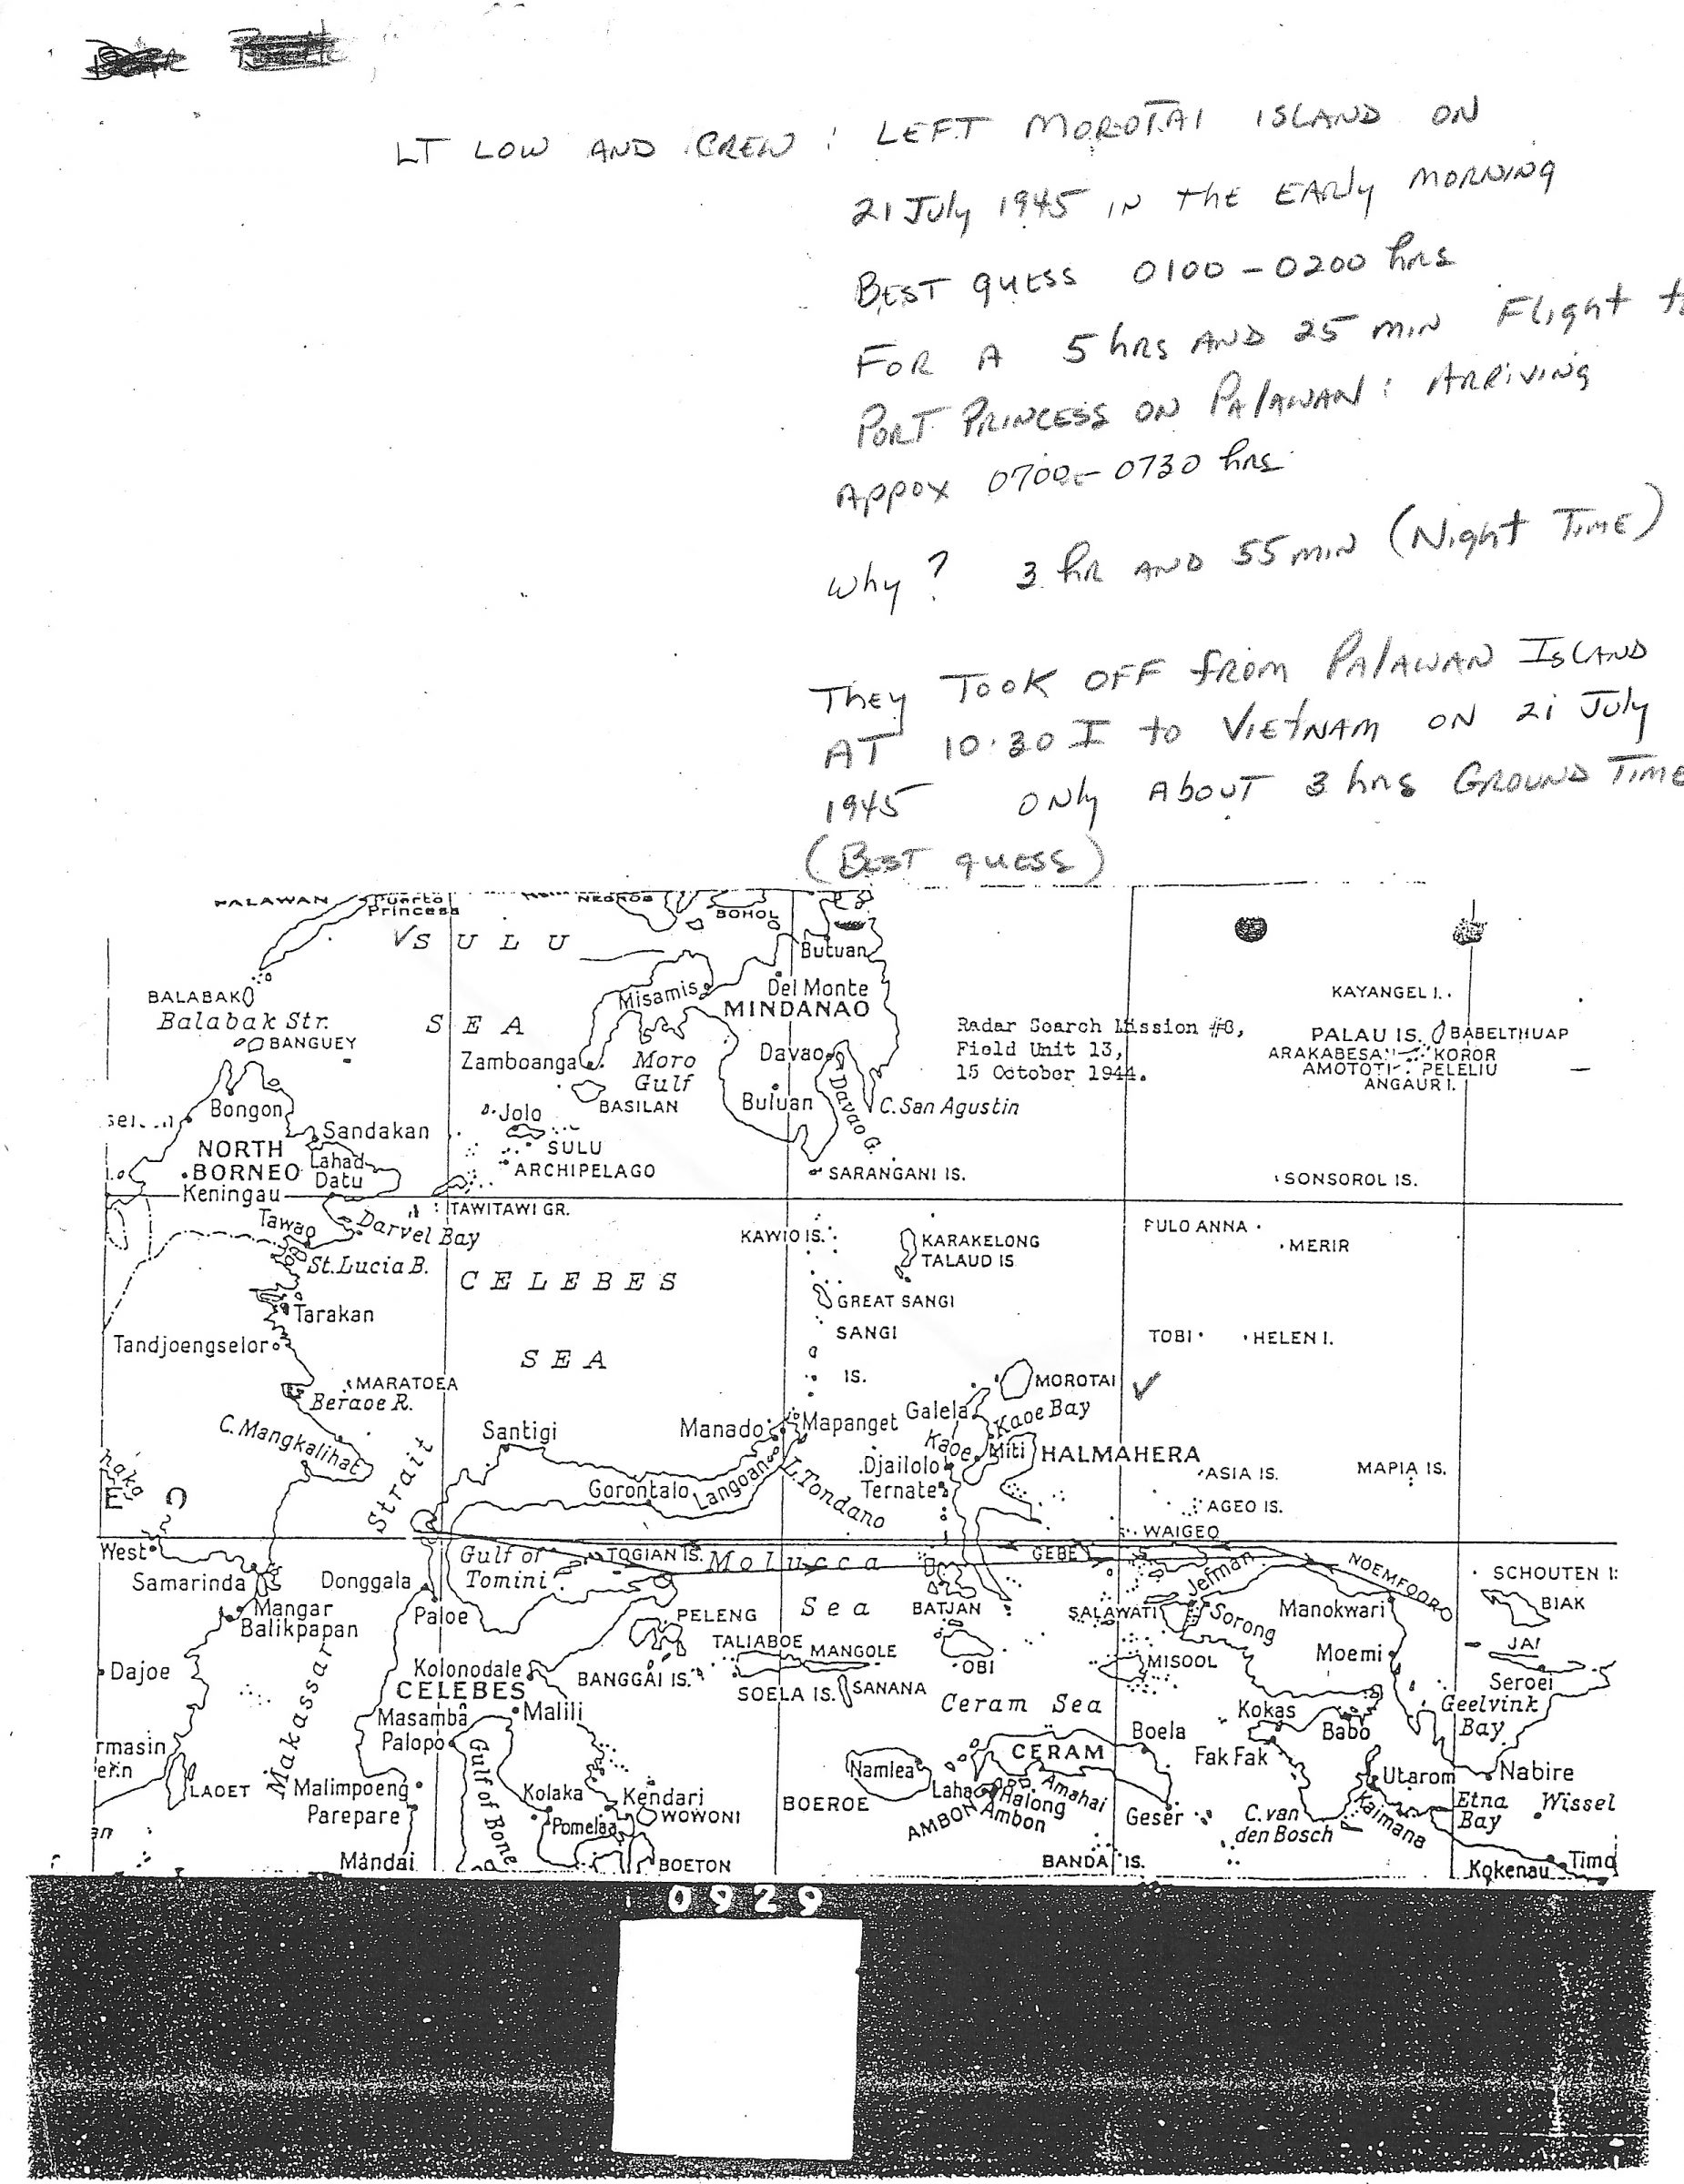 LT LOW AND CREW : LEFT MOROTAI ISLAND ON
21 July 1945 IN thE EARly MORNING
BEST quESS 0100 - 0200 hRS
FOR A 5 hRS AND 25 MIN Flight
PORT PRINCESS ON PALAWAN : ARRIVING
Appox 0700 - 0730 hRS
Why? 3 hR AND 55 MIN (Night TIME)
ThEY TOOK OFF fROM PALAWAN ISLAND
AT 10:30 I to VIEtNAM ON 21 July
1945 ONly ABOUT 3 hRS GROUND TIME
(BEST quESS)
PALAWAN Puerto NEGROS BOHOL
Princess
SULU
Butuan
Misamis Del Monte
BALABAK MINDANAO KAYANGEL I.
Balabak Str. SEA Radar Search Mission #8, PALAU IS. BABELTHUAP
BANGUEY Zamboanga Moro Davao Field Unit 13, ARAKABESAN KOROR
Gulf 15 October 1944. AMOTOTI PELELIU
ANGAUR I.
Bongon Jolo BASILAN Buluan Davao G. C. San Agustin
Sandakan
NORTH SULU
BORNEO Lahad ARCHIPELAGO SARANGANI IS. SONSOROL IS.
Keningau Datu
TAWITAWI GR.
Tawao Darvel Bay KAWIO IS. KARAKELONG PULO ANNA
St. Lucia B. TALAUD IS MERIR
CELEBES
Tarakan GREAT SANGI
Tandjoengselor SANGI TOBI HELEN I.
SEA
MARATOEA IS. MOROTAI
Beraoe R.
C. Mangkalihat Santigi Manado Mapanget Galela Kaoe Bay
Kaoe Miti HALMAHERA
Strait Gorontalo Langoan L. Tondano Djailolo ASIA IS. MAPIA IS.
Ternate AGEO IS.
WAIGEO
West Gulf of TOGIAN IS. Molucca GEBE Jefman NOEMFOORO SCHOUTEN
Samarinda Donggala Tomini
Mangar Paloe PELENG Sea BATJAN SALAWATI Sorong Manokwari BIAK
Balikpapan
TALIABOE MANGOLE Moemi
Dajoe Makassar Kolonodale BANGGAI IS. OBI MISOOL Seroei
CELEBES SOELA IS. SANANA
Masamba Malili Ceram Sea Kokas Babo Geelvink
Palopo Boela Bay
CERAM Fak Fak
Namlea Utarom Nabire
LAOET Malimpoeng Gulf of Bone Kolaka Kendari Laha Halong Amahai Etna Wissel
Parepare WOWONI BOEROE AMBON Ambon Geser C. van Kaimana Bay
Pomelaa den Bosch
Mandai BOETON BANDA IS. Kokenau
0929